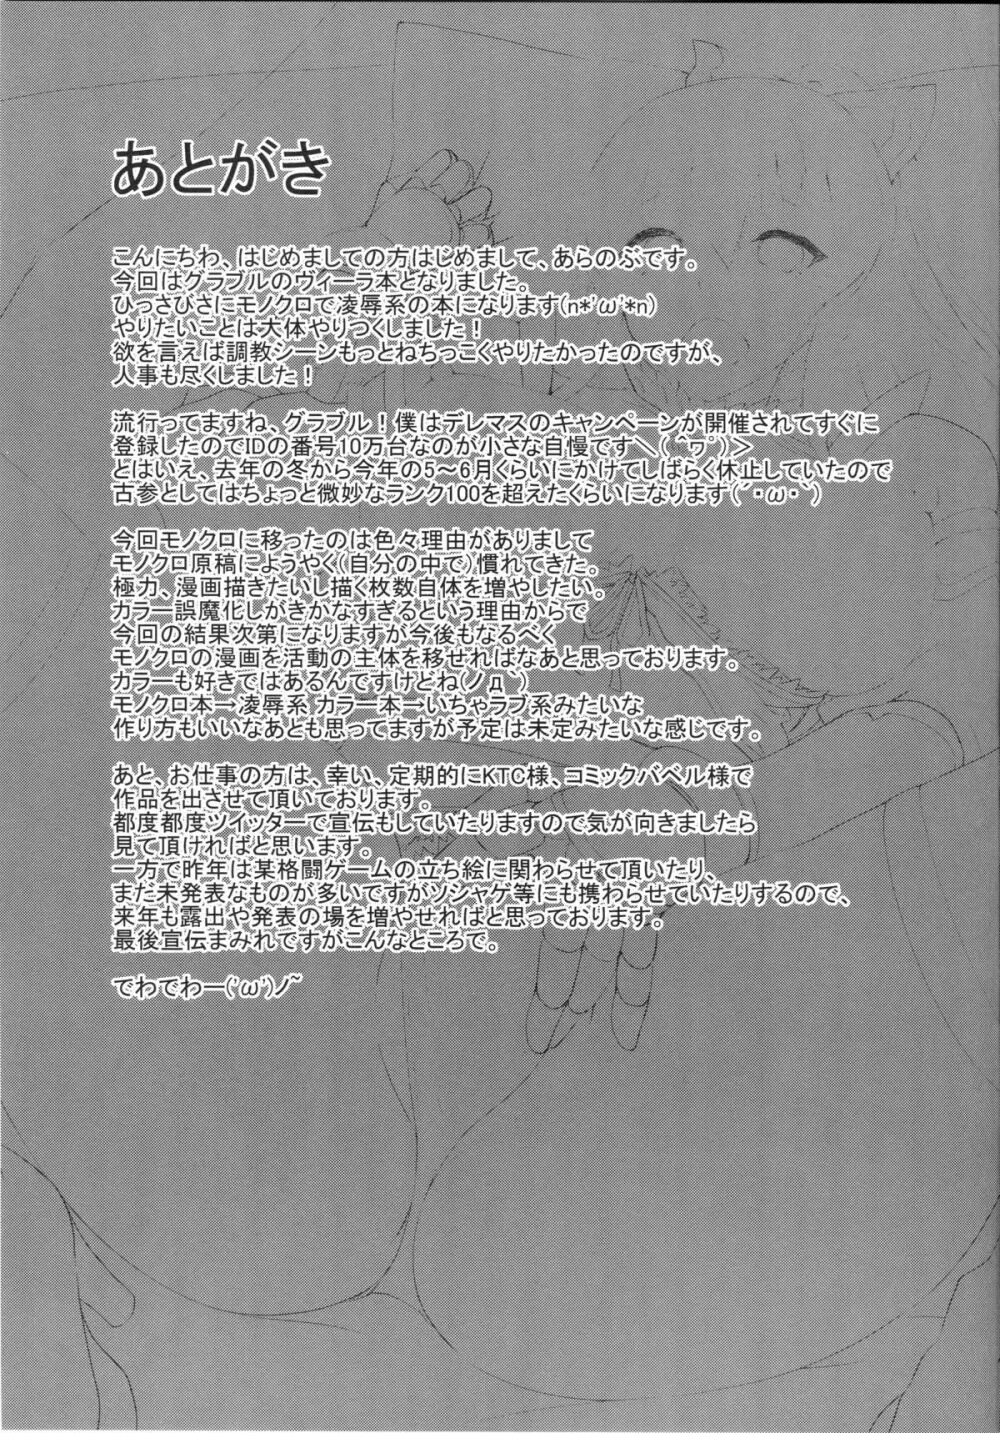 あとがき
こんにちわ、はじめましての方はじめまして、あらのぶです。
今回はグラブルのヴィーラ本となりました。
ひっさびさにモノクロで凌辱系の本になります(n*'ω'*n)
やりたいことは大体やりつくしました！
欲を言えば調教シーンもっとねちっこくやりたかったのですが、
人事も尽くしました！
流行ってますね、グラブル！僕はデレマスのキャンペーンが開催されてすぐに
登録したのでIDの番号10万台なのが小さな自慢です＼( ^ヮ°)＞
とはいえ、去年の冬から今年の5～6月くらいにかけてしばらく休止していたので
古参としてはちょっと微妙なランク100を超えたくらいになります(´･ω･`)
今回モノクロに移ったのは色々理由がありまして
モノクロ原稿にようやく(自分の中で)慣れてきた。
極力、漫画描きたいし描く枚数自体を増やしたい。
カラー誤魔化しがきかなすぎるという理由からで
今回の結果次第になりますが今後もなるべく
モノクロの漫画を活動の主体を移せればなあと思っております。
カラーも好きではあるんですけどね(ノд`)
モノクロ本→凌辱系 カラー本→いちゃラブ系みたいな
作り方もいいなあとも思ってますが予定は未定みたいな感じです。
あと、お仕事の方は、幸い、定期的にKTC様、コミックバベル様で
作品を出させて頂いております。
都度都度ツイッターで宣伝もしていたりますので気が向きましたら
見て頂ければと思います。
一方で昨年は某格闘ゲームの立ち絵に関わらせて頂いたり、
まだ未発表なものが多いですがソシャゲ等にも携わらせていたりするので、
来年も露出や発表の場を増やせればと思っております。
最後宣伝まみれですがこんなところで。
でわでわー('ω')ノ~